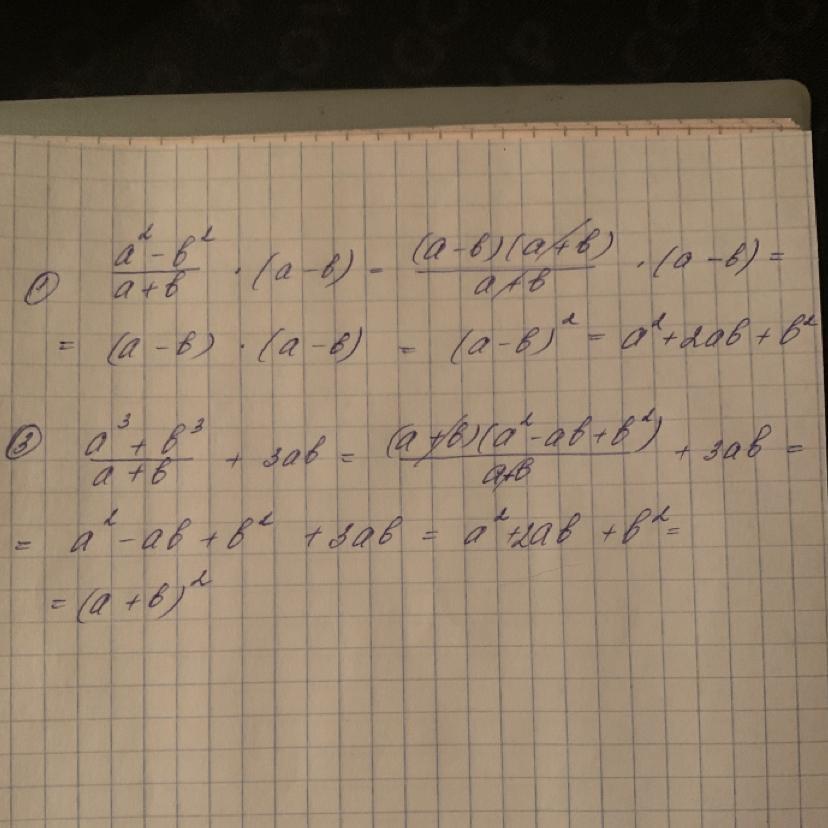 ① (a² - b²)/(a + b) · (a - b) = ((a - b)(a + b))/(a + b) · (a - b) =
= (a - b) · (a - b) = (a - b)² = a² + 2ab + b²
③ (a³ + b³)/(a + b) + 3ab = ((a + b)(a² - ab + b²))/(a + b) + 3ab =
= a² - ab + b² + 3ab = a² + 2ab + b² =
= (a + b)²